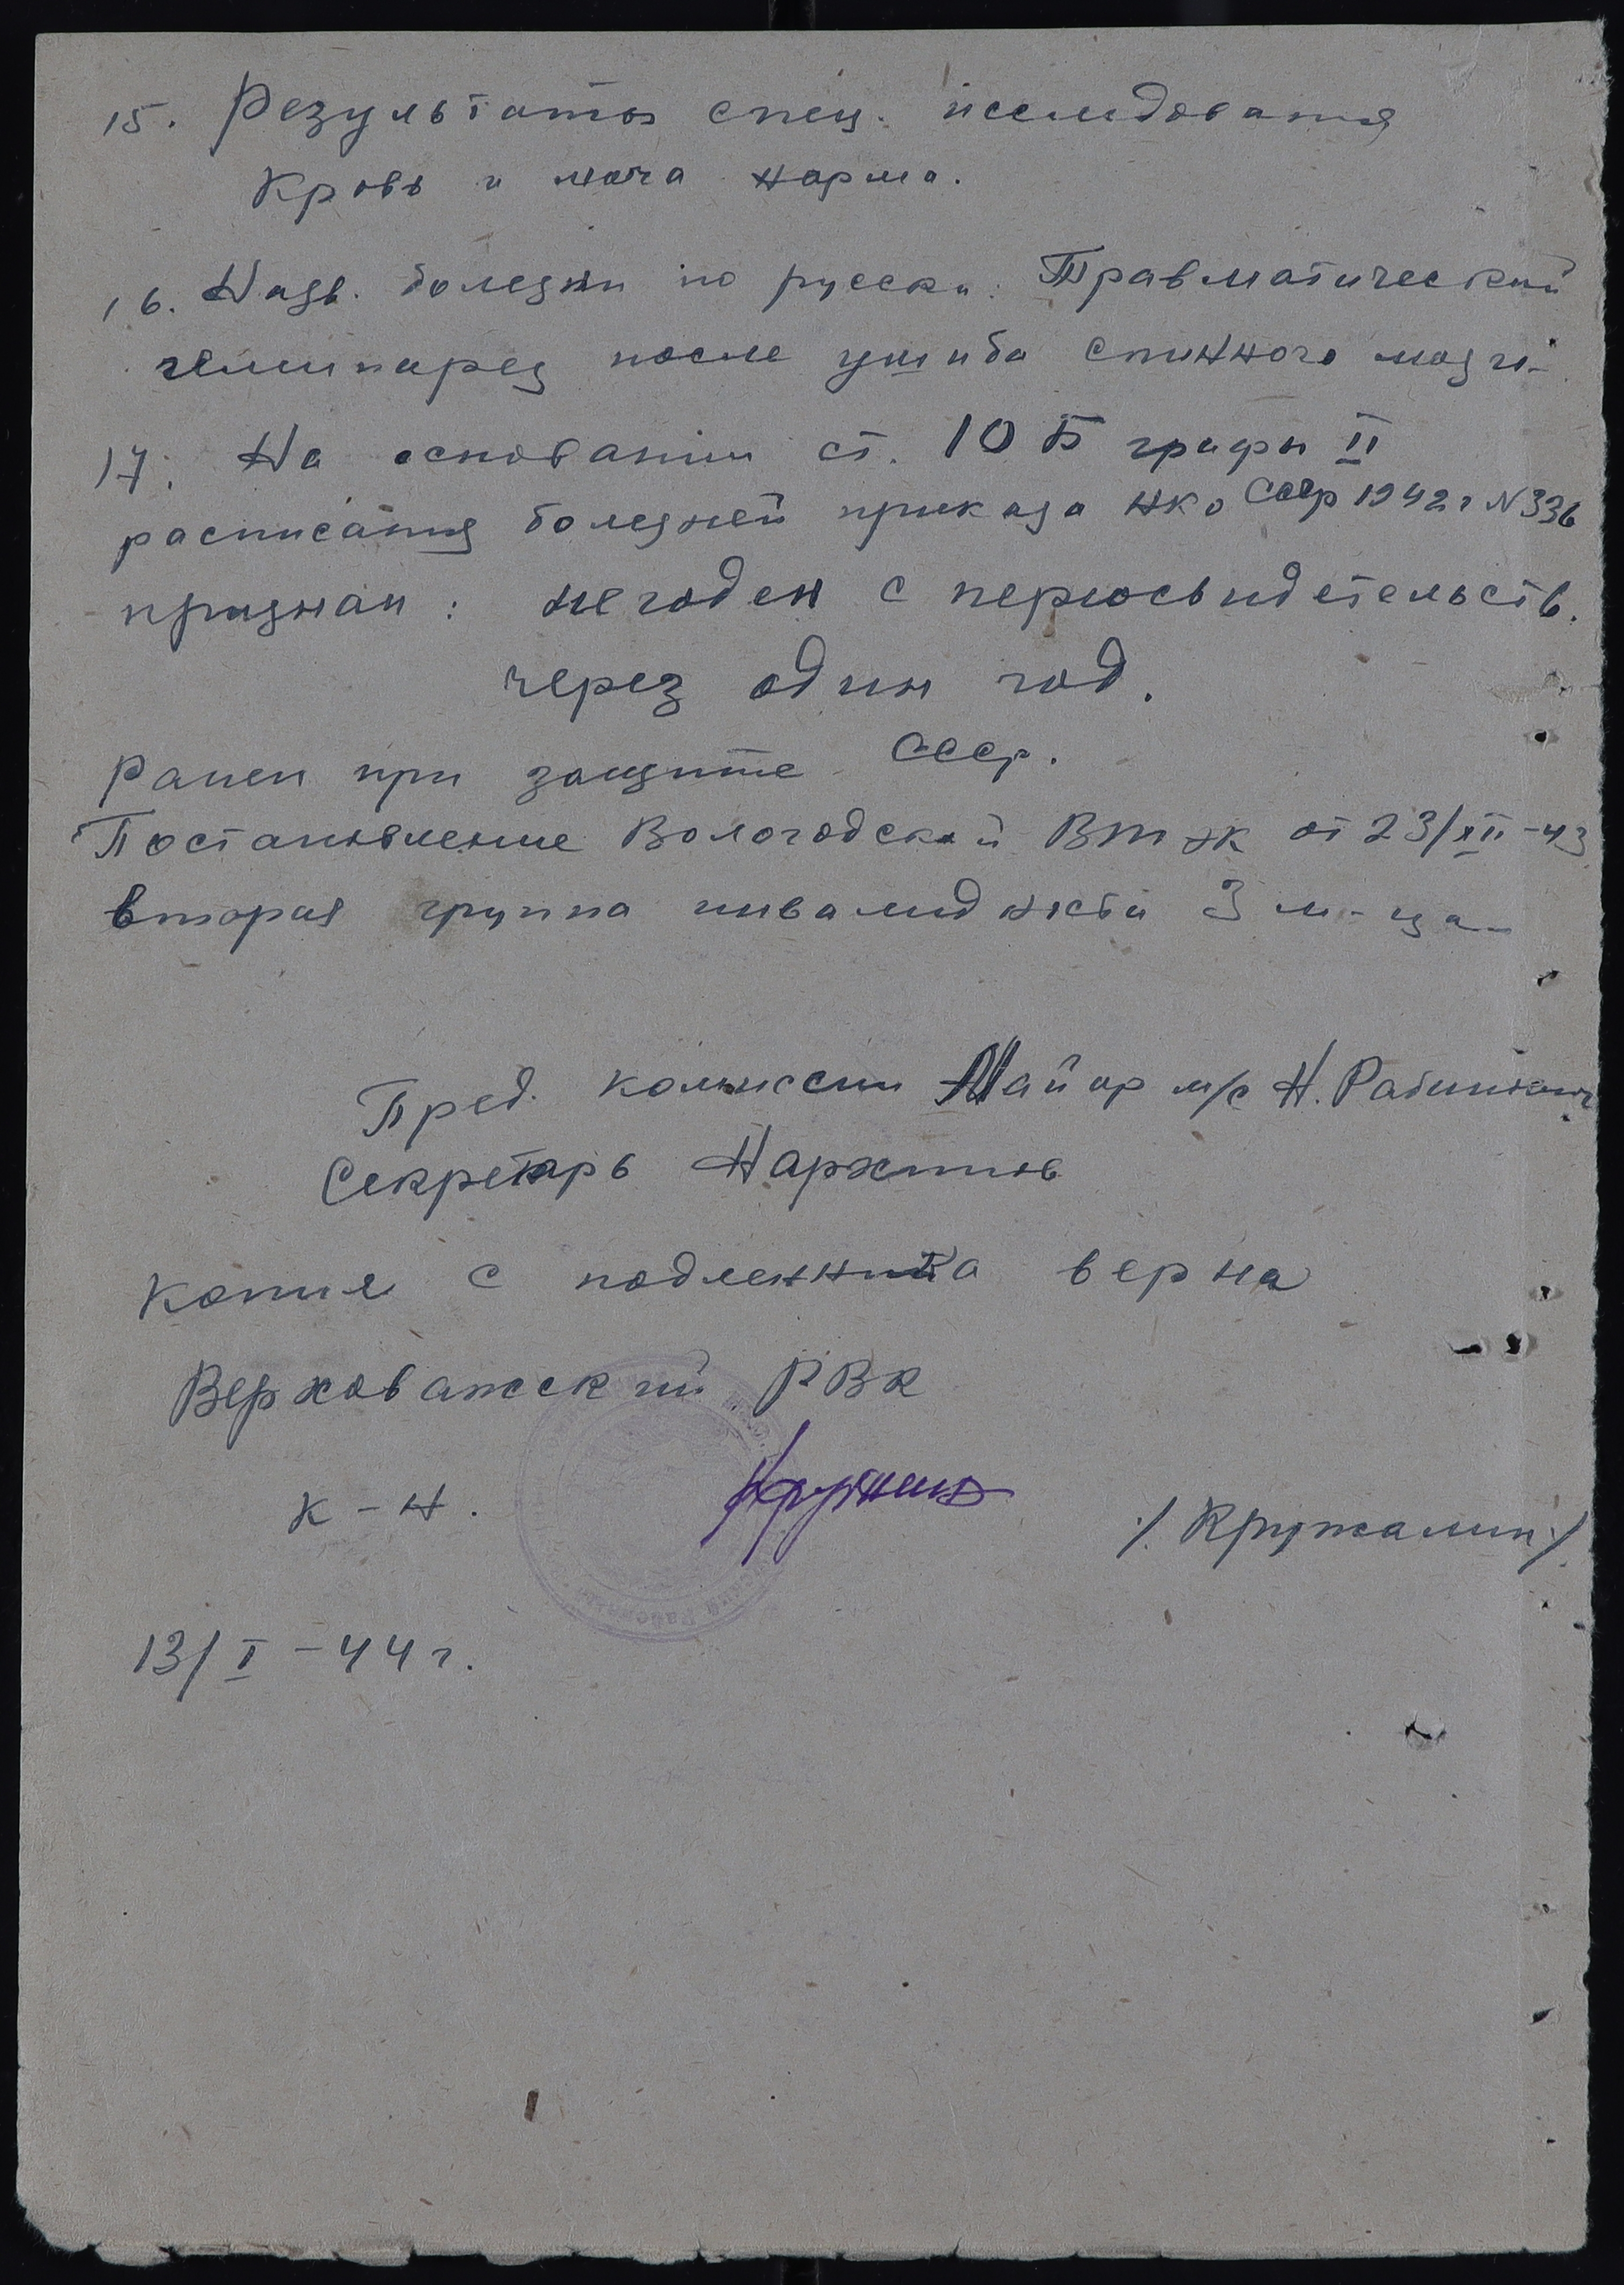 15. Результаты спец. исследования
Кровь и моча норма.
16. Назв. болезни по русски: Травматический
гемипарез после ушиба спинного мозга
17. На основании ст. 10 Б графы II
расписания болезней приказа НКО СССР 1942 г N 336
признан: негоден с переосвидетельств.
через один год.
Ранен при защите СССР.
Постановление Вологодской ВТЭК от 23/XII-43
вторая группа инвалидности 3 м-ца
Пред. комиссии Майор м/с Н. Рабинович
Секретарь
Копия с подленника верна
Верховажский РВК
К-н.
/. Кружалин ./
13/I-44 г.